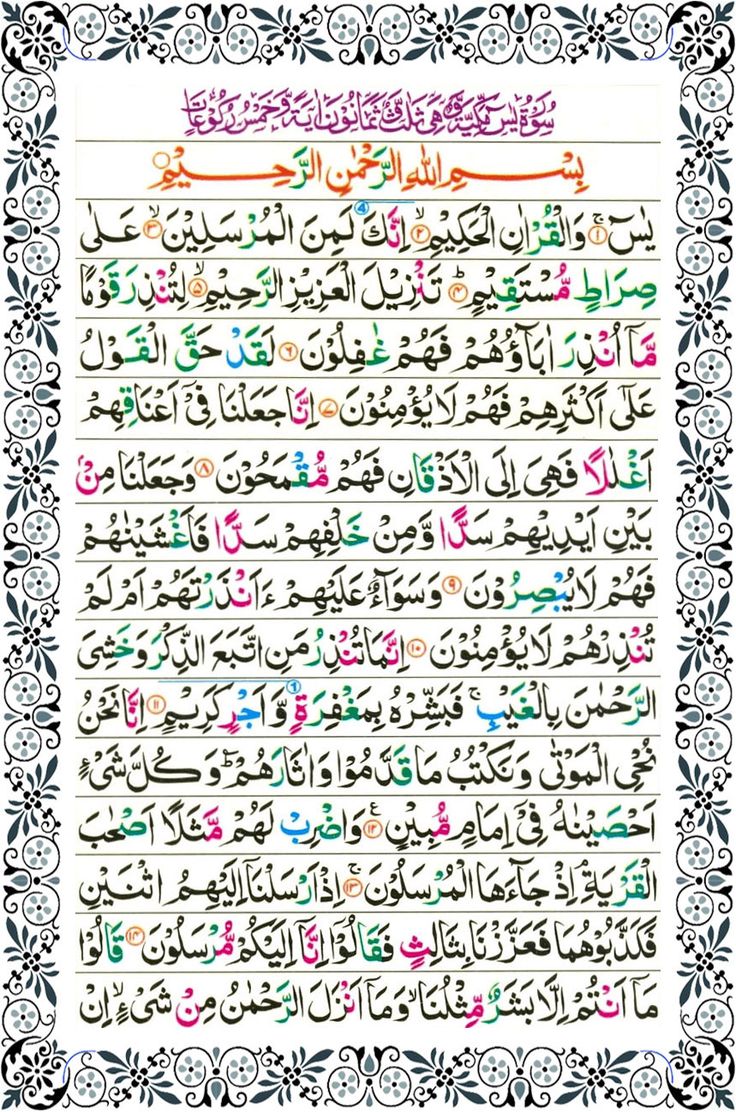 سُوْرَةُ يٰسٓ مَكِّيَّةٌ وَّهِيَ ثَلٰثٌ وَّثَمَانُوْنَ اٰيَةً وَّخَمْسُ رُكُوْعَاتٍ
بِسْمِ اللهِ الرَّحْمٰنِ الرَّحِيْمِ
يٰسٓ ۚ﴿۱﴾ وَالْقُرْاٰنِ الْحَكِيْمِ ۙ﴿۲﴾ اِنَّكَ لَمِنَ الْمُرْسَلِيْنَ ۙ﴿۳﴾ عَلٰى
صِرَاطٍ مُّسْتَقِيْمٍ ؕ﴿۴﴾ تَنْزِيْلَ الْعَزِيْزِ الرَّحِيْمِ ۙ﴿۵﴾ لِتُنْذِرَ قَوْمًا
مَّاۤ اُنْذِرَ اٰبَآؤُهُمْ فَهُمْ غٰفِلُوْنَ ﴿۶﴾ لَقَدْ حَقَّ الْقَوْلُ
عَلٰۤى اَكْثَرِهِمْ فَهُمْ لَا يُؤْمِنُوْنَ ﴿۷﴾ اِنَّا جَعَلْنَا فِيْۤ اَعْنَاقِهِمْ
اَغْلٰلًا فَهِيَ اِلَى الْاَذْقَانِ فَهُمْ مُّقْمَحُوْنَ ﴿۸﴾ وَجَعَلْنَا مِنْۢ
بَيْنِ اَيْدِيْهِمْ سَدًّا وَّمِنْ خَلْفِهِمْ سَدًّا فَاَغْشَيْنٰهُمْ
فَهُمْ لَا يُبْصِرُوْنَ ﴿۹﴾ وَسَوَآءٌ عَلَيْهِمْ ءَاَنْذَرْتَهُمْ اَمْ لَمْ
تُنْذِرْهُمْ لَا يُؤْمِنُوْنَ ﴿۱۰﴾ اِنَّمَا تُنْذِرُ مَنِ اتَّبَعَ الذِّكْرَ وَخَشِيَ
الرَّحْمٰنَ بِالْغَيْبِ ۚ فَبَشِّرْهُ بِمَغْفِرَةٍ وَّاَجْرٍ كَرِيْمٍ ﴿۱۱﴾ اِنَّا نَحْنُ
نُحْيِ الْمَوْتٰى وَنَكْتُبُ مَا قَدَّمُوْا وَاٰثَارَهُمْ ؕ وَكُلَّ شَيْءٍ
اَحْصَيْنٰهُ فِيْۤ اِمَامٍ مُّبِيْنٍ ﴿۱۲﴾ع وَاضْرِبْ لَهُمْ مَّثَلًا اَصْحٰبَ
الْقَرْيَةِ ۘ اِذْ جَآءَهَا الْمُرْسَلُوْنَ ۚ﴿۱۳﴾ اِذْ اَرْسَلْنَاۤ اِلَيْهِمُ اثْنَيْنِ
فَكَذَّبُوْهُمَا فَعَزَّزْنَا بِثَالِثٍ فَقَالُوْۤا اِنَّاۤ اِلَيْكُمْ مُّرْسَلُوْنَ ﴿۱۴﴾ قَالُوْا
مَاۤ اَنْتُمْ اِلَّا بَشَرٌ مِّثْلُنَا ۙ وَمَاۤ اَنْزَلَ الرَّحْمٰنُ مِنْ شَيْءٍ ۙ اِنْ